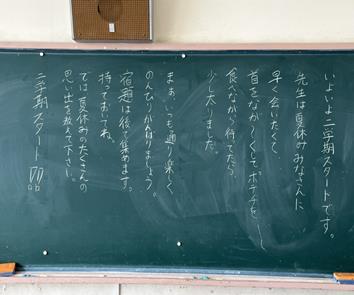 いよいよ二学期スタートです。
先生は夏休みみなさんに
早く会いたくて、
首をなが〜くしてポテチを
食べながら待ってたら、
少し太りました。
まぁ、いつも通り楽しく、
のんびりがんばりましょう。
宿題は後で集めます。
持っておいてね。
では夏休みのたくさんの
思い出を教えて下さい。
二学期スタート